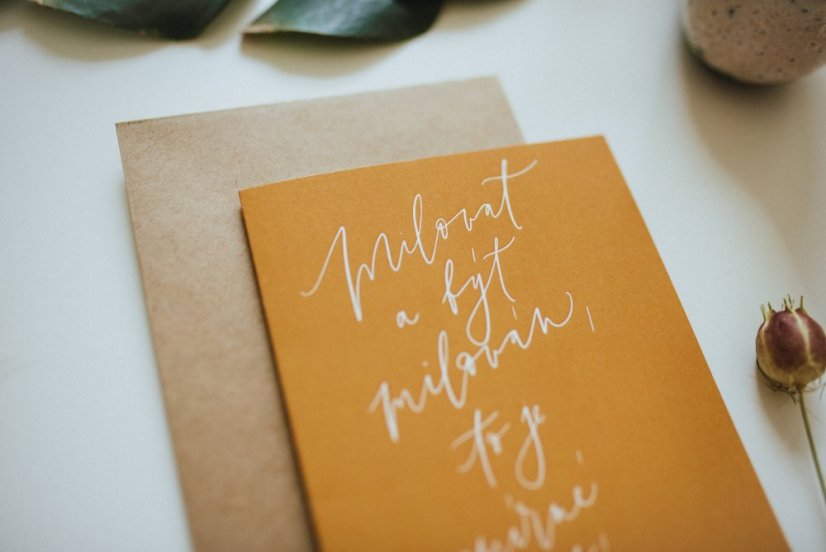 Milovat
a být
milován,
to je